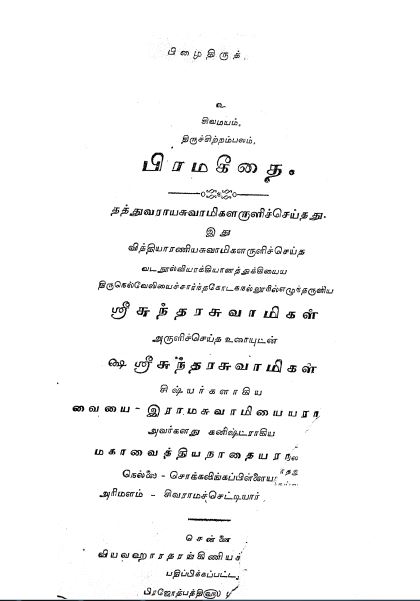 பிழைதிருத்
உ
சிவமயம்.
திருச்சிற்றம்பலம்.
பிரமகீதை.
தத்துவராயசுவாமிகளருளிச்செய்தது.
இது
வித்தியாரணியசுவாமிகளருளிச்செய்த
வடநூல்வியாக்கியானத்துக்கியைய
திருநெல்வேலியைச்சார்ந்தகோடகநல்லூரிலெழுந்தருளிய
ஸ்ரீசுந்தரசுவாமிகள்
அருளிச்செய்த உரையுடன்
௸ ஸ்ரீசுந்தரசுவாமிகள்
சிஷ்யர்களாகிய
வையை - இராமசுவாமியையரா
அவர்களது கனிஷ்டராகிய
மகாவைத்தியநாதையரா
நெல்லை - சொக்கலிங்கப்பிள்ளைய
அரிமளம் - சிவராமச்செட்டியார்
சென்னை
வியவஹாரதரங்கிணியச்
பதிப்பிக்கப்பட்ட
பிரஜோற்பத்தி